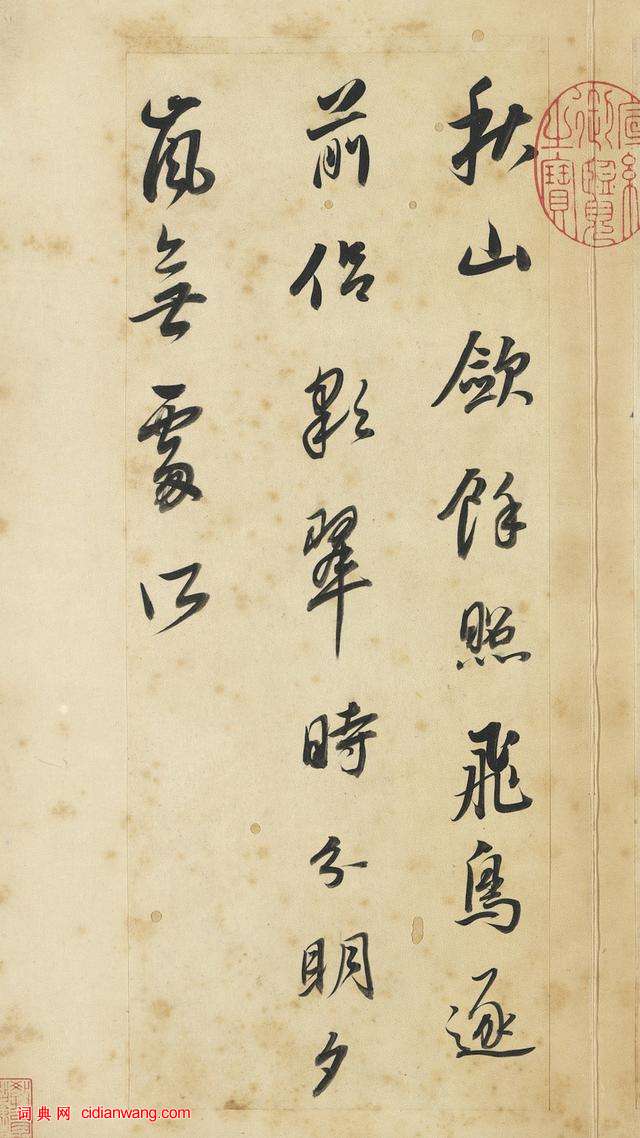 秋山歛餘照飛鳥逐
前侣彩翠時分明夕
嵐無處所
宣統御覽之寶
词典网 cidianwang.com